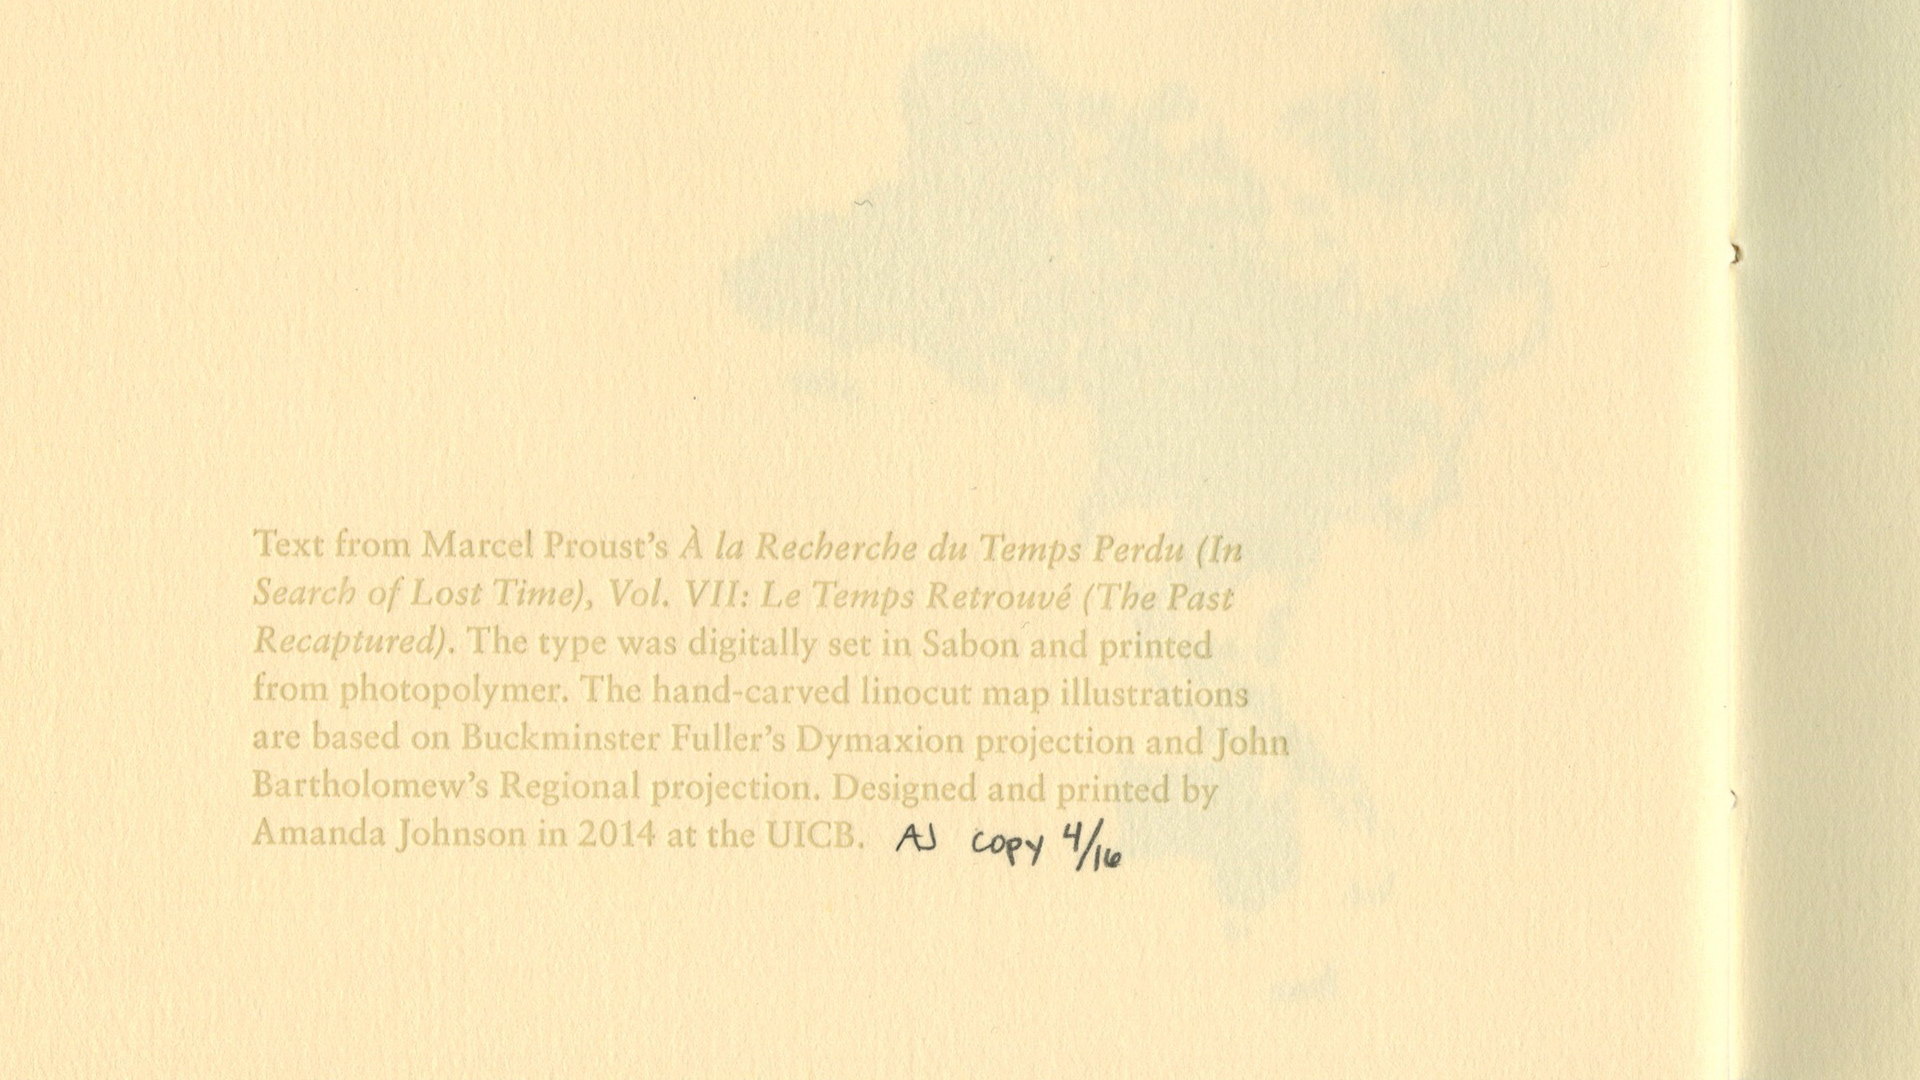 Text from Marcel Proust’s À la Recherche du Temps Perdu (In
Search of Lost Time), Vol. VII: Le Temps Retrouvé (The Past
Recaptured). The type was digitally set in Sabon and printed
from photopolymer. The hand-carved linocut map illustrations
are based on Buckminster Fuller’s Dymaxion projection and John
Bartholomew’s Regional projection. Designed and printed by
Amanda Johnson in 2014 at the UICB. AJ copy 4/16